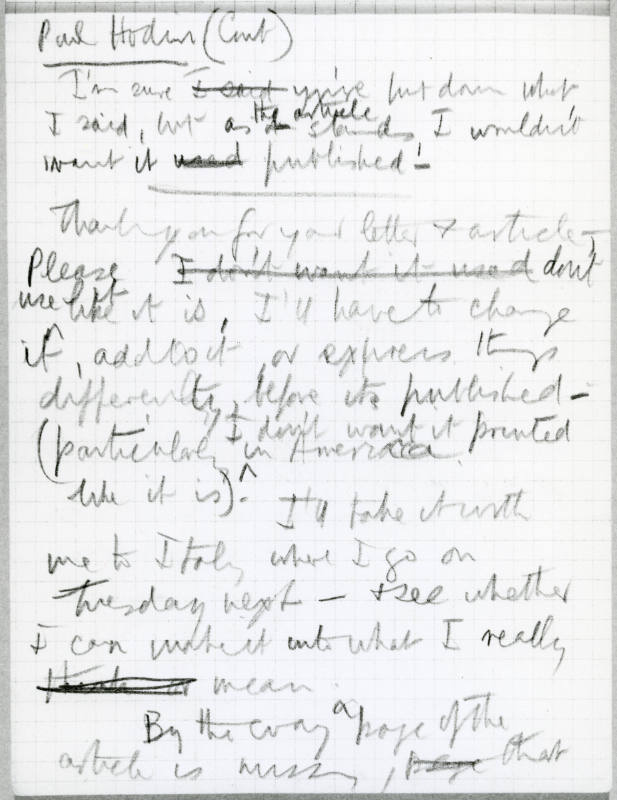 Paul Hodin (Cont)
I'm sure I said you've put down what
I said, but as the article stands I wouldn't
want it used published!
Thank you for your letter & article –
Please I don't want it used don't
use it like it is, I'll have to change
it, add to it, or express things
differently, before its published –
(particularly I don't want it printed in America
like it is). I'll take it with
me to Italy where I go on
Tuesday next – & see whether
I can make it into what I really
think or mean.
By the way a page of the
article is missing, page that